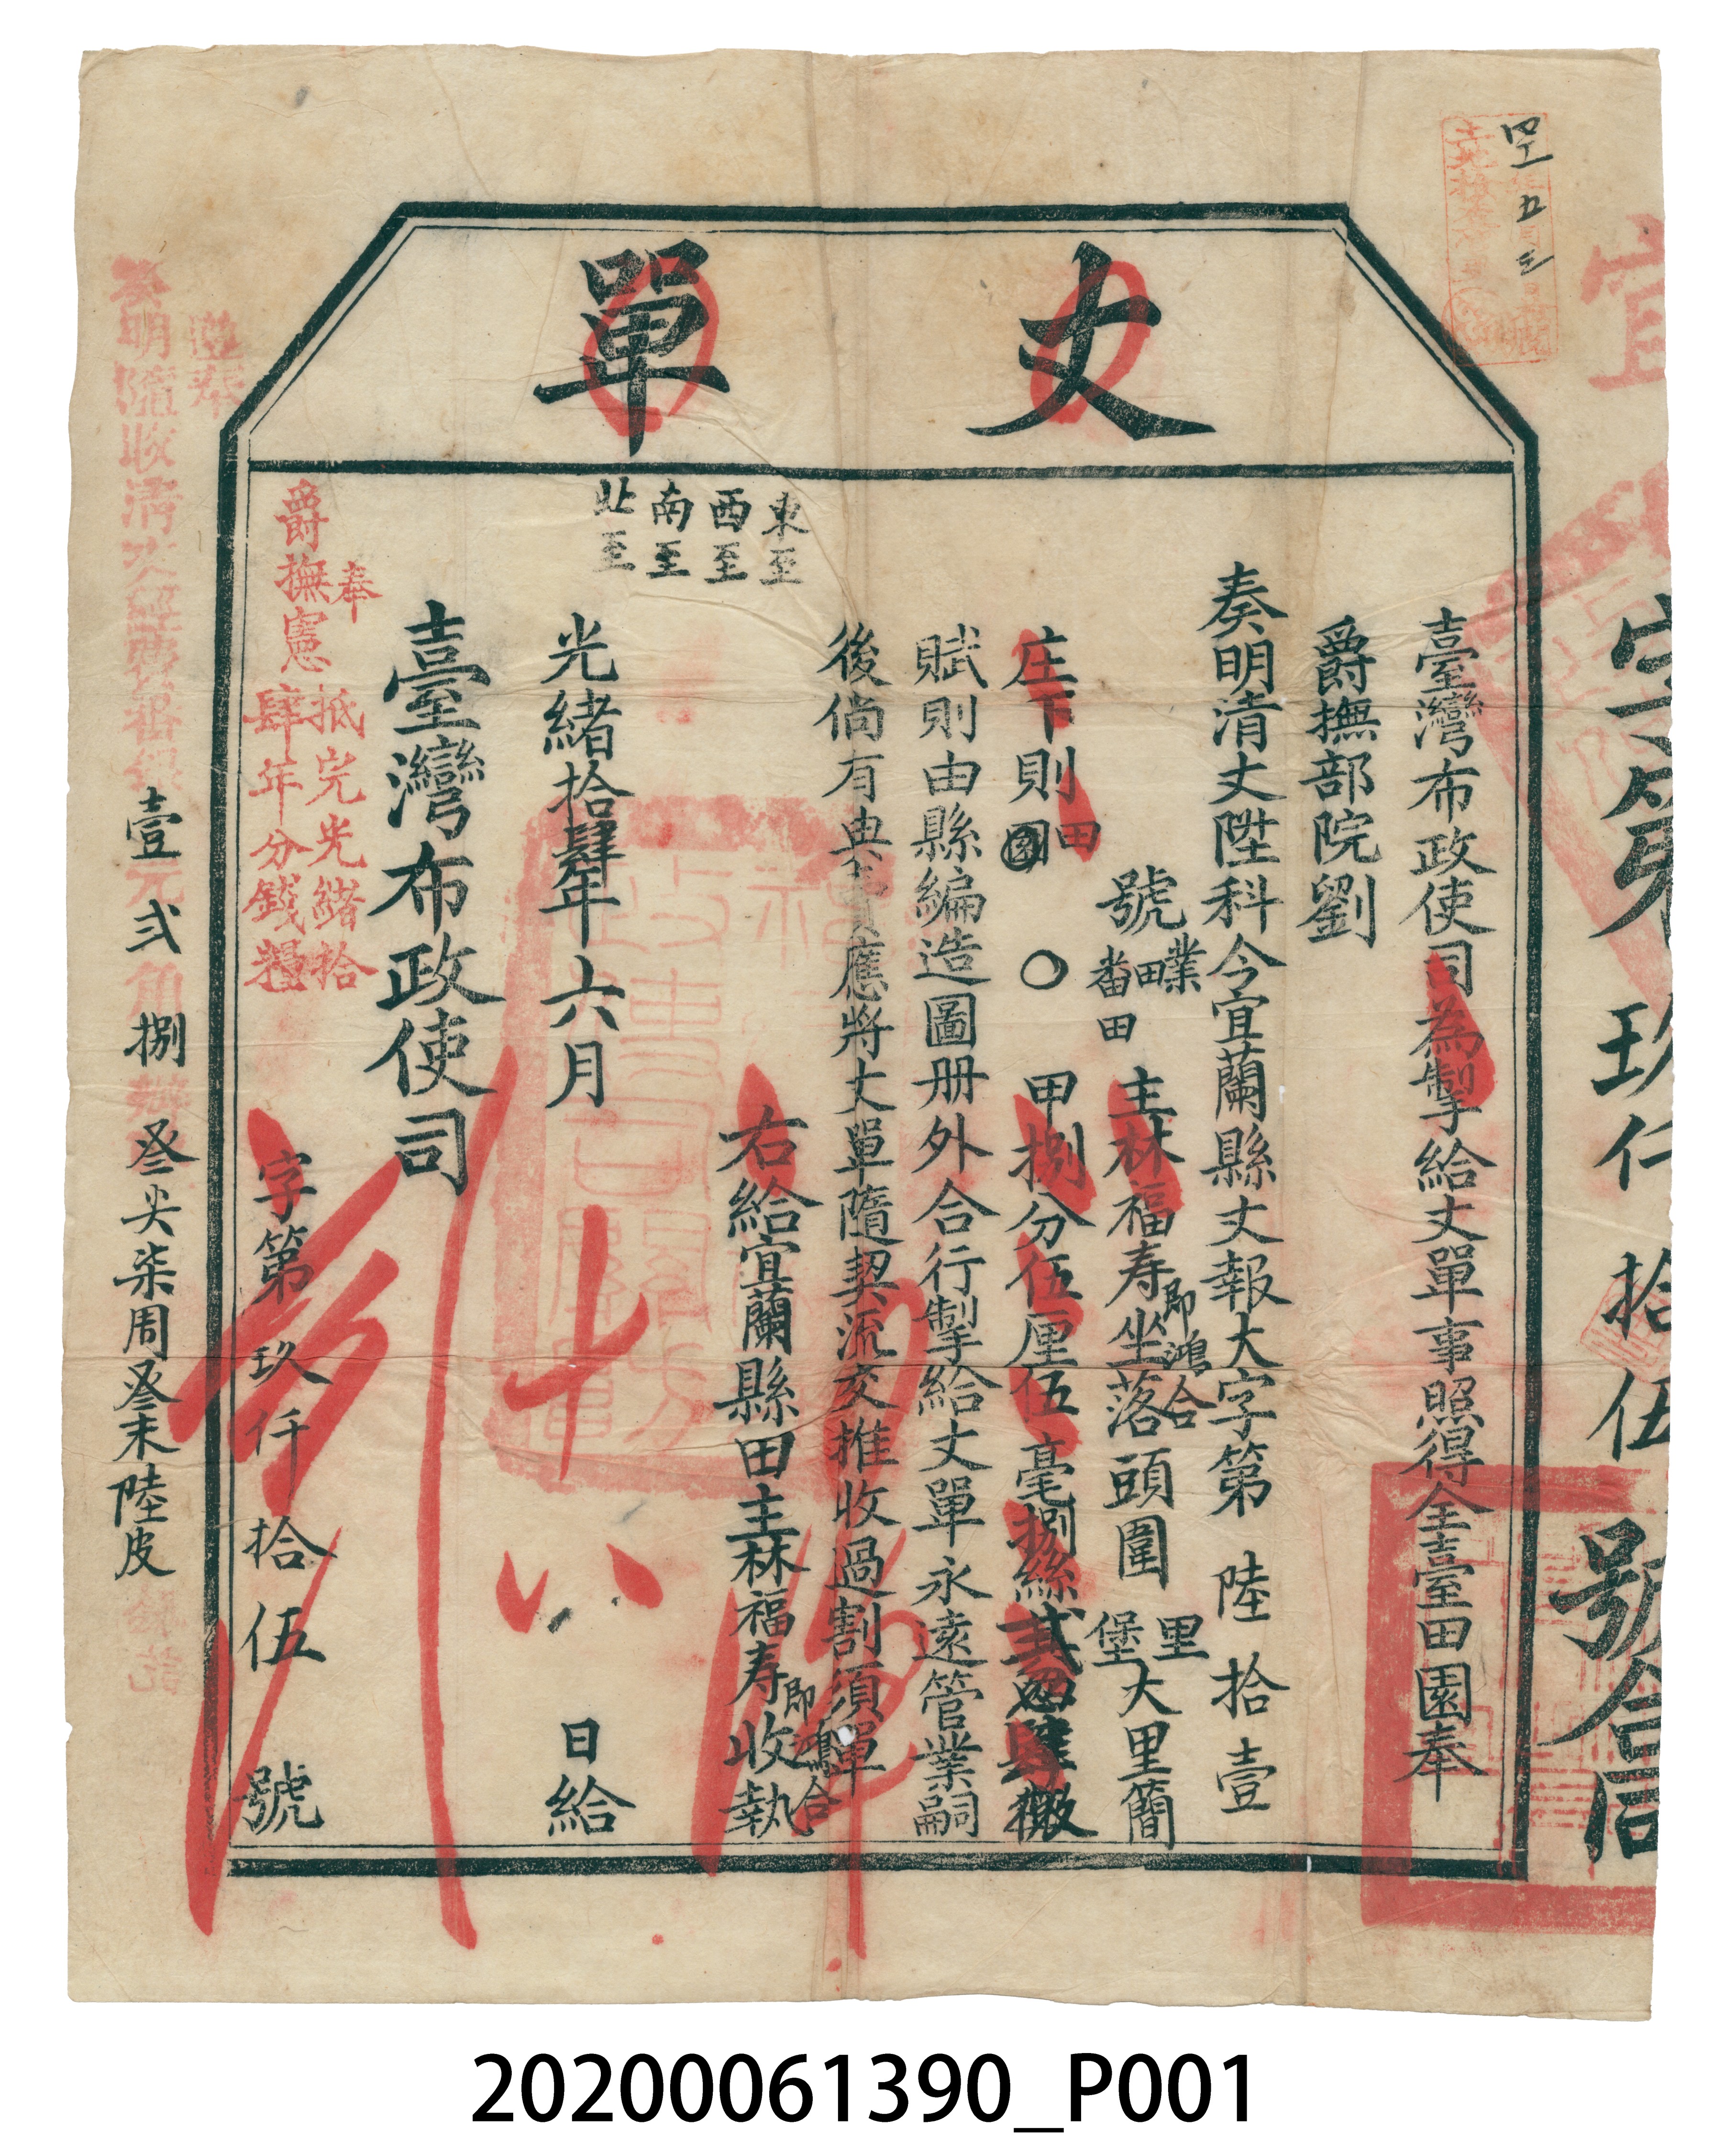 丈單
字第 玖仟 拾伍 號
臺灣布政使司為掣給丈單事照得全臺田園奉
爵撫部院劉
奏明清丈陞科今宜蘭縣丈報大字第 陸拾壹
號業田番田主林福寿即鴻合坐落頭圍里堡大里簡
庄下則田園 〇 甲捌分伍厘伍毫捌絲弍忽肆微
賦則由縣編造圖册外合行掣給丈單永遠管業嗣
後倘有典賣應將丈單隨契流交推收過割須單
右給宜蘭縣田主林福寿即鴻合收執
東至
西至
南至
北至
光緒拾肆年六月 十八 日給
臺灣布政使司
奉
爵撫憲
抵完光緒拾
肆年分錢糧
字第玖仟拾伍 號
遵奉
奏明隨收清丈經費番銀壹元弍角捌辦叄尖柒周叄末陸皮
20200061390_P001